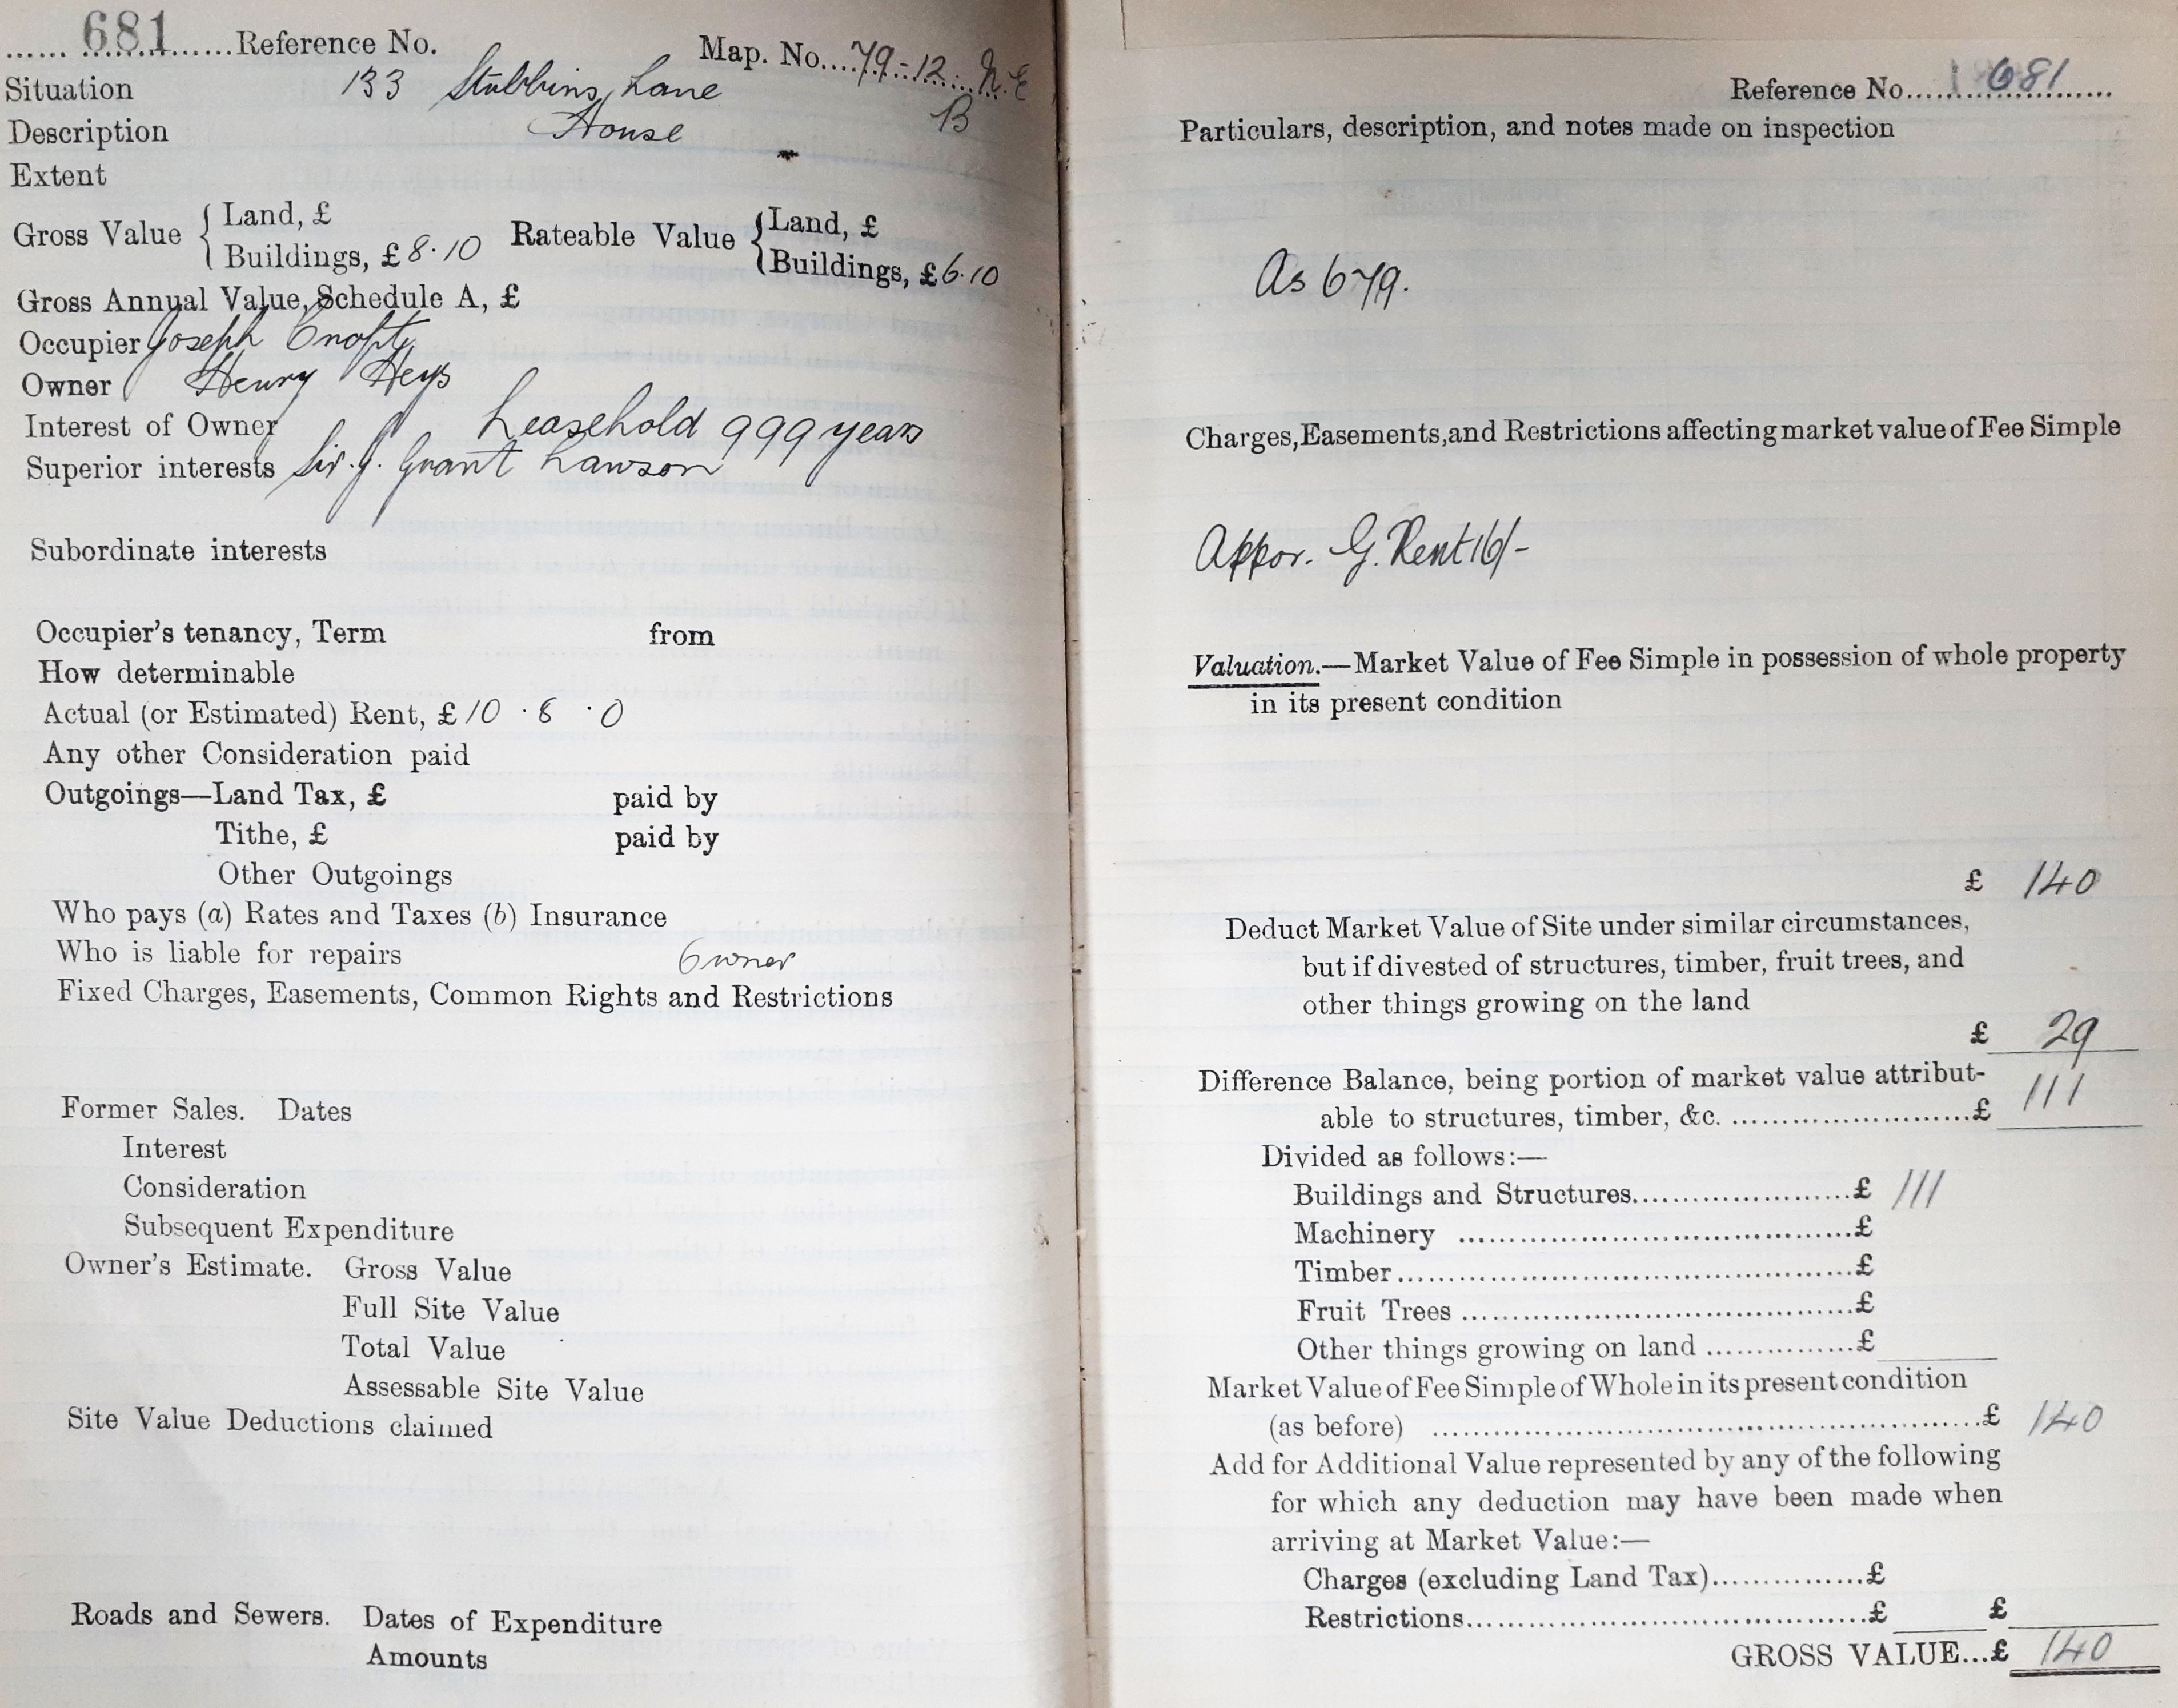 ...... 681 ......Reference No. Map. No....79-12...N.E
Situation 133 Stubbins Lane B
Description House
Extent
Gross Value { Land, £ Rateable Value { Land, £
Buildings, £8.10 Buildings, £6.10
Gross Annual Value, Schedule A, £
Occupier Joseph
Owner Henry Heys
Interest of Owner Leasehold 999 years
Superior interests Sir J. Grant Lawson
Subordinate interests
Occupier's tenancy, Term from
How determinable
Actual (or Estimated) Rent, £10 . 8 . 0
Any other Consideration paid
Outgoings—Land Tax, £ paid by
Tithe, £ paid by
Other Outgoings
Who pays (a) Rates and Taxes (b) Insurance
Who is liable for repairs Owner
Fixed Charges, Easements, Common Rights and Restrictions
Former Sales. Dates
Interest
Consideration
Subsequent Expenditure
Owner's Estimate. Gross Value
Full Site Value
Total Value
Assessable Site Value
Site Value Deductions claimed
Roads and Sewers. Dates of Expenditure
Amounts
Reference No......681......
Particulars, description, and notes made on inspection
As 679.
Charges, Easements, and Restrictions affecting market value of Fee Simple
Appor. G. Rent 16/-
Valuation.—Market Value of Fee Simple in possession of whole property
in its present condition
£ 140
Deduct Market Value of Site under similar circumstances,
but if divested of structures, timber, fruit trees, and
other things growing on the land
£ 29
Difference Balance, being portion of market value attribut-
able to structures, timber, &c. ..........................£ 111
Divided as follows:—
Buildings and Structures........................£ 111
Machinery ............................................£
Timber..................................................£
Fruit Trees ...........................................£
Other things growing on land ................£
Market Value of Fee Simple of Whole in its present condition
(as before) ..............................................................£ 140
Add for Additional Value represented by any of the following
for which any deduction may have been made when
arriving at Market Value:—
Charges (excluding Land Tax)................£
Restrictions.............................................£ £
GROSS VALUE...£ 140